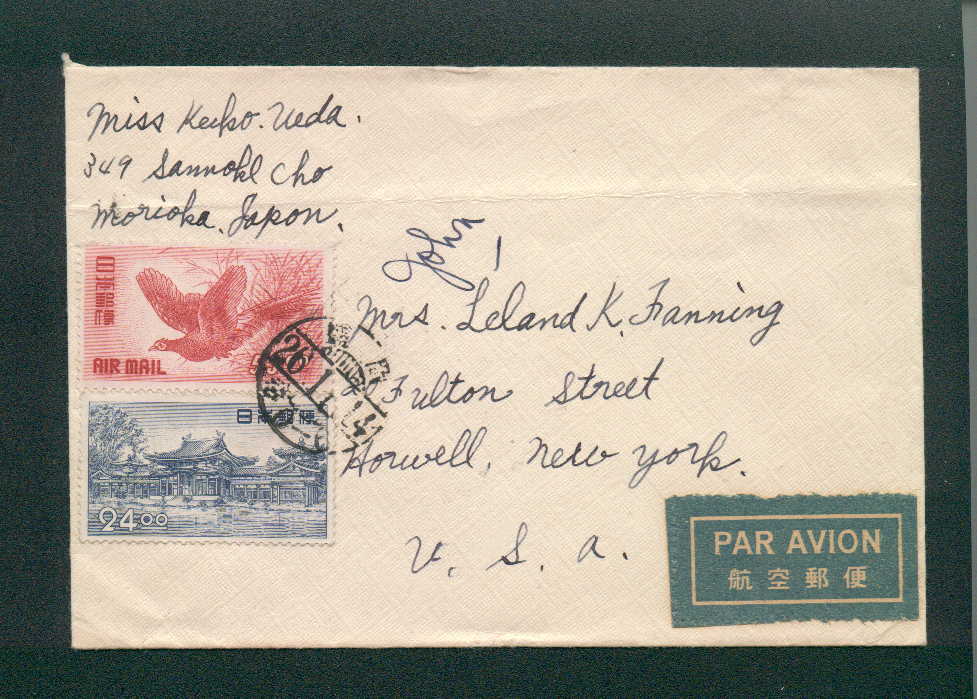 Miss Keiko. Ueda.
349 Sannohl Cho
Morioka, Japon.
John
Mrs. Leland K. Fanning
Fulton Street
Horwell, New York.
U. S. A.
日本郵便
AIR MAIL
26
便郵本日
24.00
PAR AVION
航空郵便